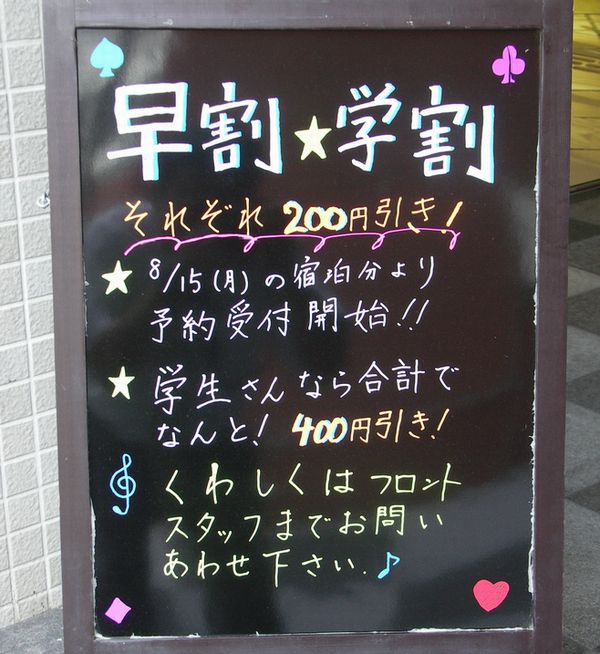 早割★学割
それぞれ 200円引き!
★ 8/15(月)の宿泊分より
予約受付開始!!
★ 学生さんなら合計で
なんと! 400円引き!
くわしくはフロント
スタッフまでお問い
あわせ下さい.♪